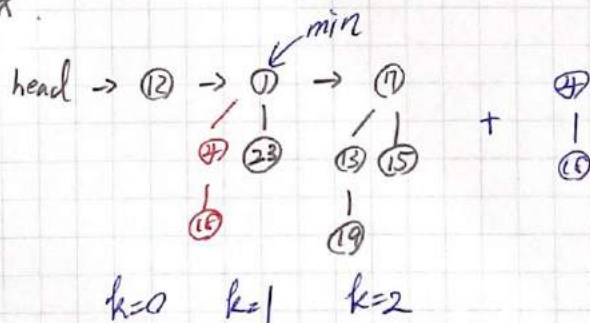 min
head → 12 → 1 → 7 + 4
4 23 13 15
19
k=0 k=1 k=2